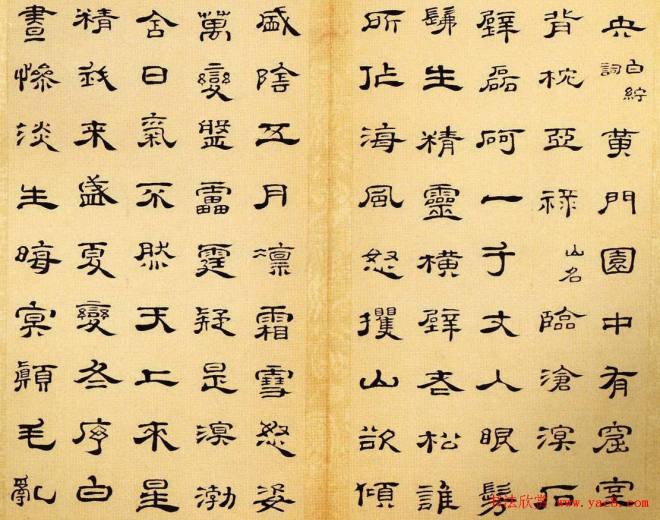 央白紵詞黄門園中有窟室
背枕亞禄山名臨滄溟石
壁磊砢一千丈人眼髣
髴生精靈横壁老松誰
所作海風怒攫山欲傾
盛陰五月凛霜雪怒姿
萬變盤雷霆疑是溟渤
含日氣不然天上來星
精我来盛夏變冬序白
晝惨淡生晦冥顛毛亂
书法欣赏 www.yac8.com